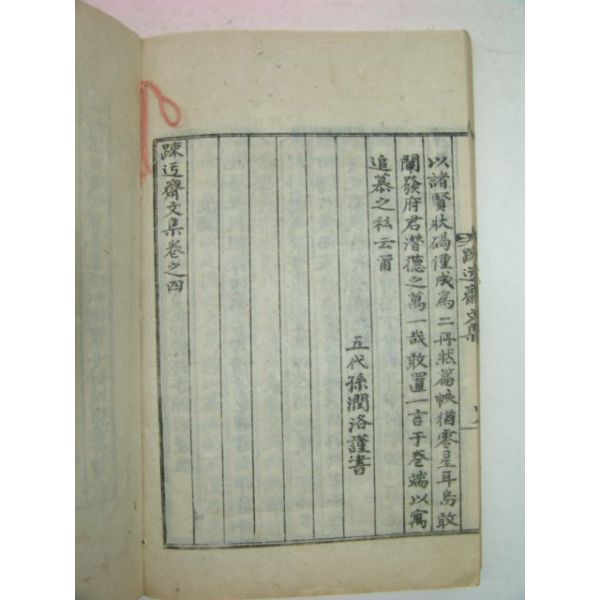 疎迃齋文集
以諸賢狀碣僅成爲二冊然篇帙猶零星耳烏敢
闡發府君潛德之萬一哉敢置一言于卷端以寓
追慕之私云爾
五代孫潤洛謹書
疎迃齋文集卷之四